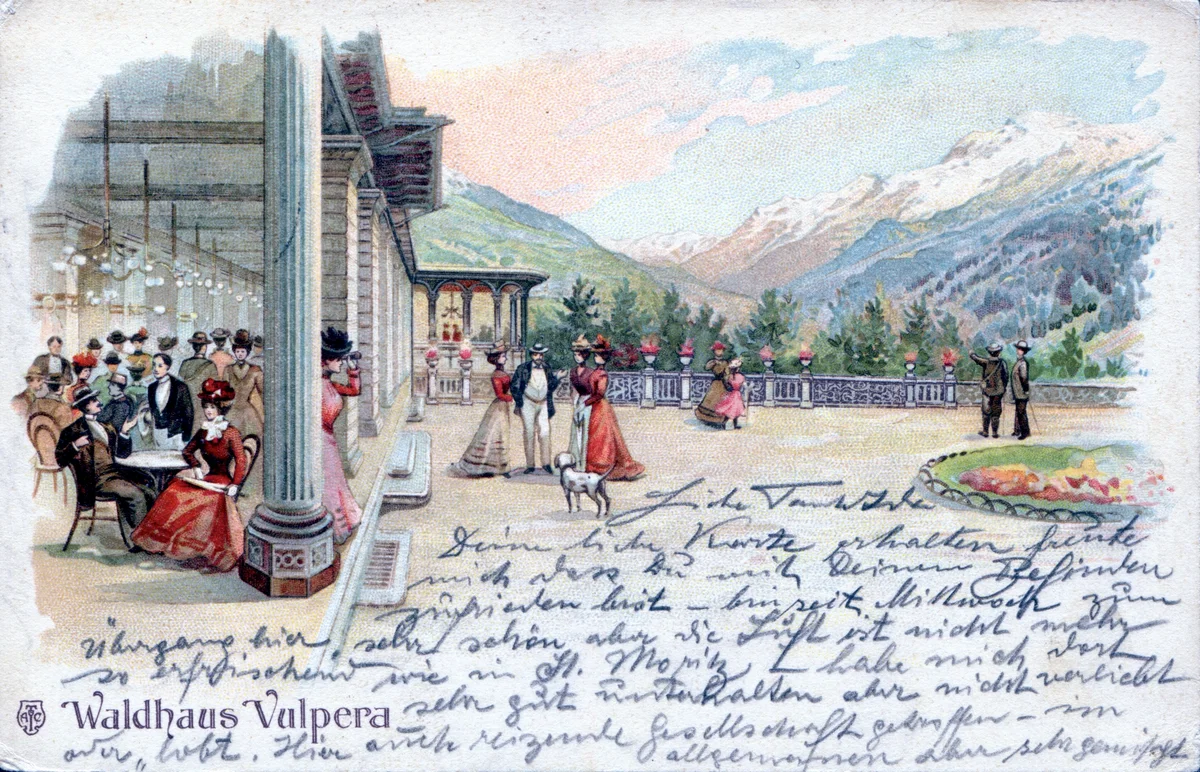 Liebe Tant
Deine liebe Karte erhalten freute
mich dass Du mit Deinem Befinden
zufrieden bist – bin seit Mittwoch zum
Übergang hier, sehr schön aber die Luft ist nicht mehr
so erfrischend wie in St. Moritz – habe mich dort
sehr gut unterhalten aber nicht verliebt
oder „lobt. Hier auch reizende Gesellschaft getroffen – im
allgemeinen aber sehr gemischt
ATC
Waldhaus Vulpera